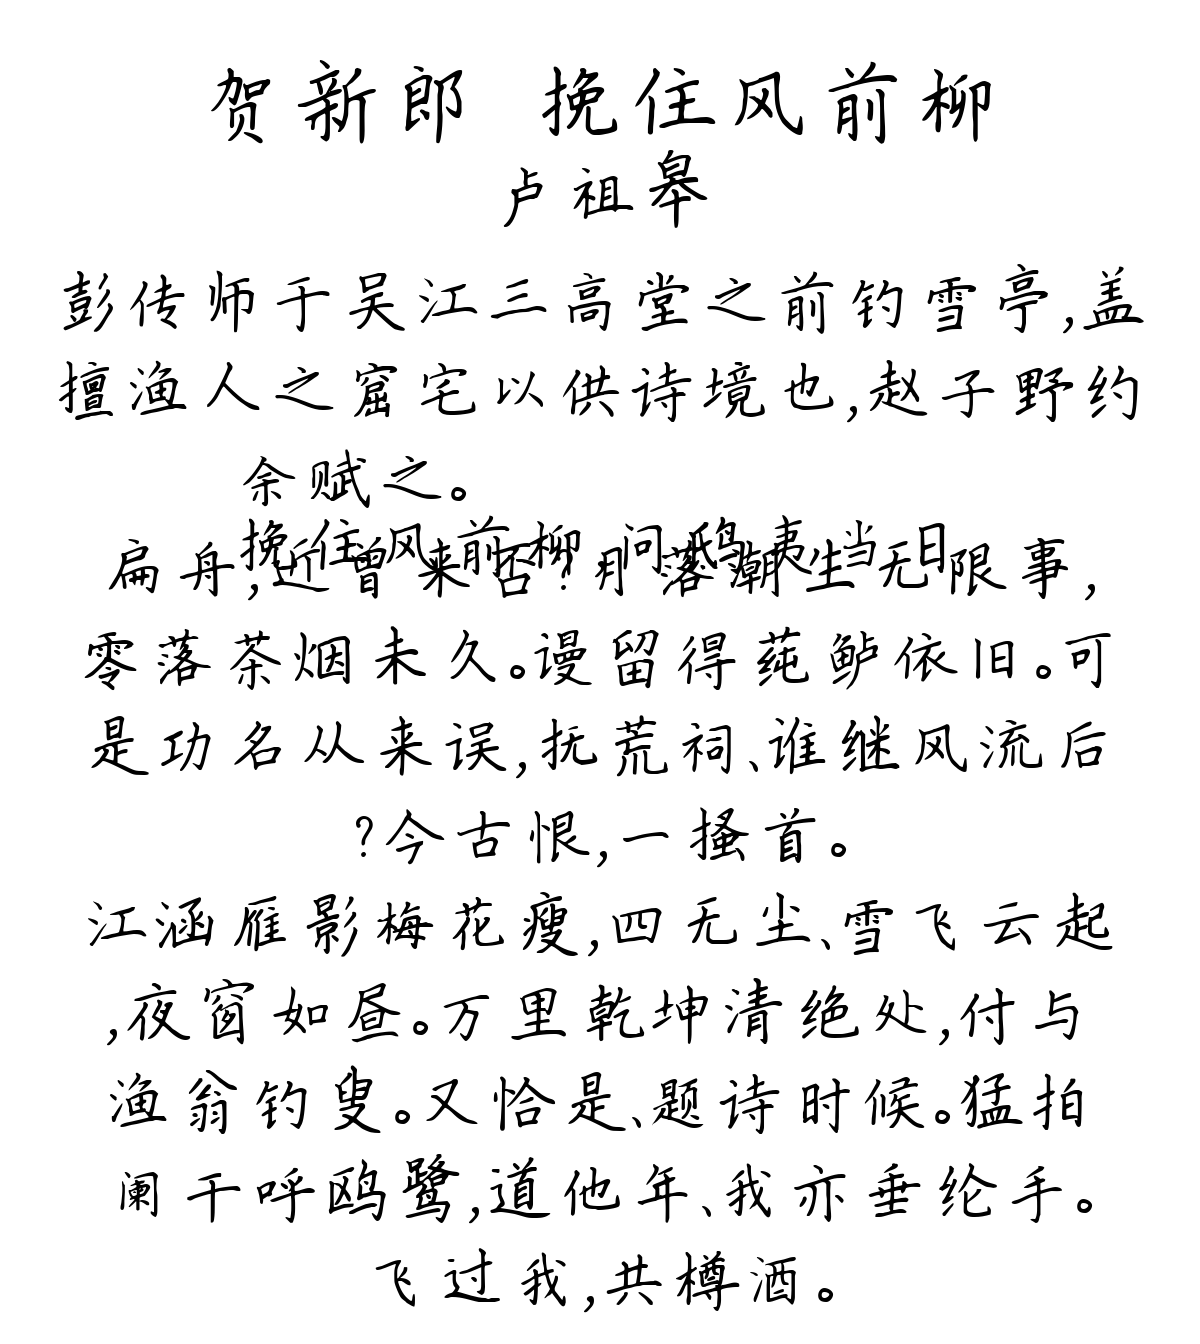 贺新郎 挽住风前柳
卢祖皋
彭传师于吴江三高堂之前钓雪亭,盖
擅渔人之窟宅以供诗境也,赵子野约
余赋之。
挽住风前柳 问鸱夷当日
扁舟,近曾来否?月落潮生无限事,
零落茶烟未久。谩留得莼鲈依旧。可
是功名从来误,抚荒祠、谁继风流后
?今古恨,一搔首。
江涵雁影梅花瘦,四无尘、雪飞云起
,夜窗如昼。万里乾坤清绝处,付与
渔翁钓叟。又恰是、题诗时候。猛拍
阑干呼鸥鹭,道他年、我亦垂纶手。
飞过我,共樽酒。